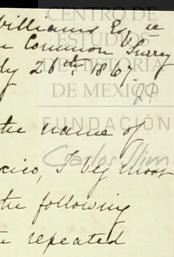 Williams Esq re
Common Surrey
26th 186
the name of
I beg most
the following
repeated
CENTRO DE
ESTUDIOS
DE HISTORIA
DE MEXICO
FUNDACIÓN
Carlos Slim